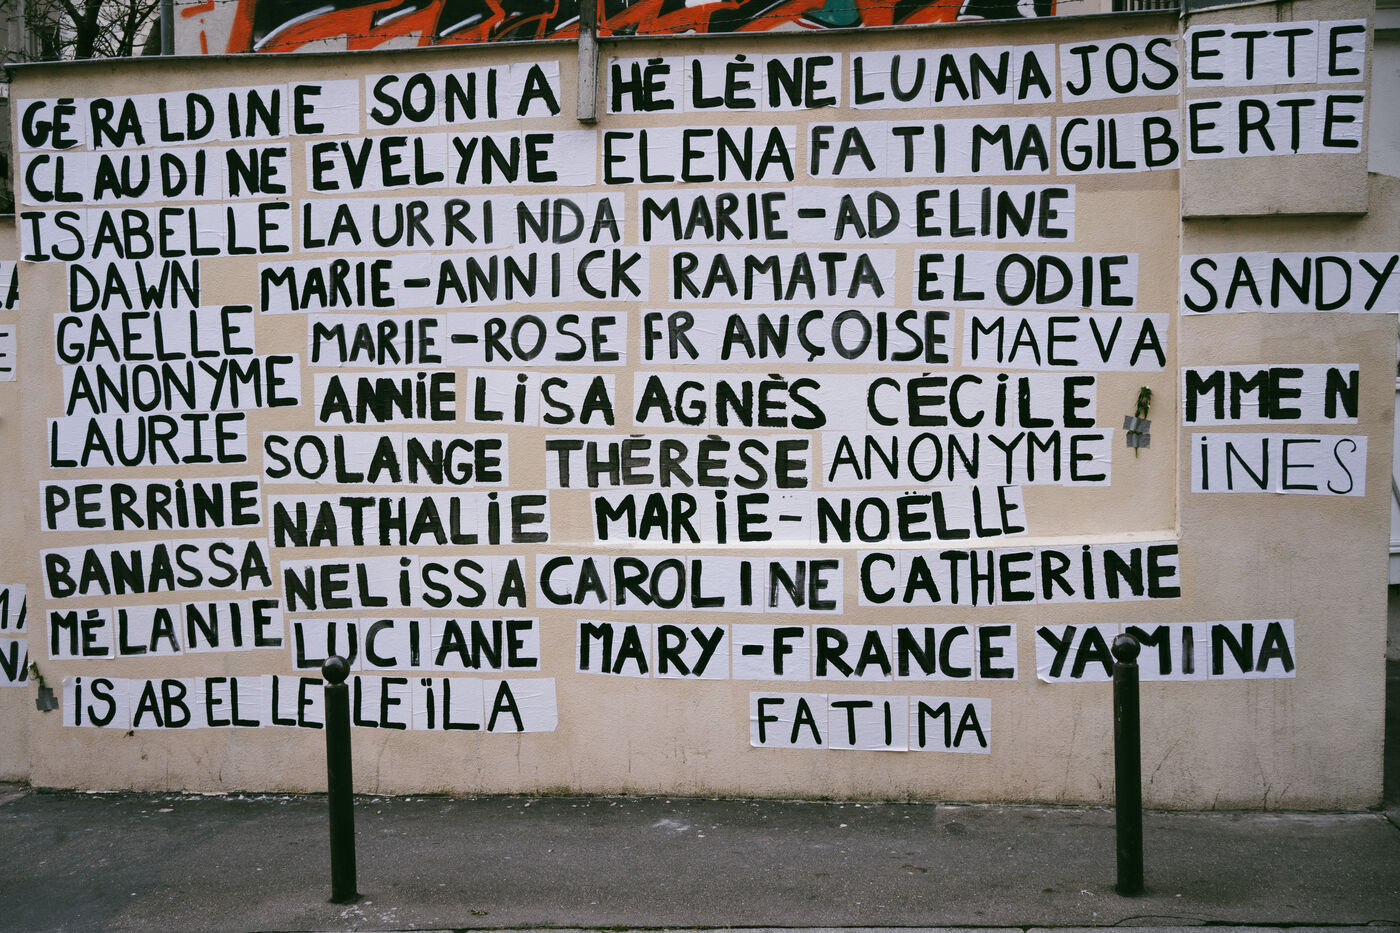 GÉRALDINE SONIA HÉLÈNE LUANA JOSETTE
CLAUDINE EVELYNE ELENA FATIMA GILBERTE
ISABELLE LAURRINDA MARIE-ADELINE
DAWN MARIE-ANNICK RAMATA ELODIE SANDY
GAELLE MARIE-ROSE FRANÇOISE MAEVA
ANONYME ANNIE LISA AGNÈS CÉCILE MMEN
LAURIE SOLANGE THÉRÈSE ANONYME INES
PERRINE NATHALIE MARIE-NOËLLE
BANASSA NELISSA CAROLINE CATHERINE
MÉLANIE LUCIANE MARY-FRANCE YAMINA
ISABELLE LEÏLA FATIMA